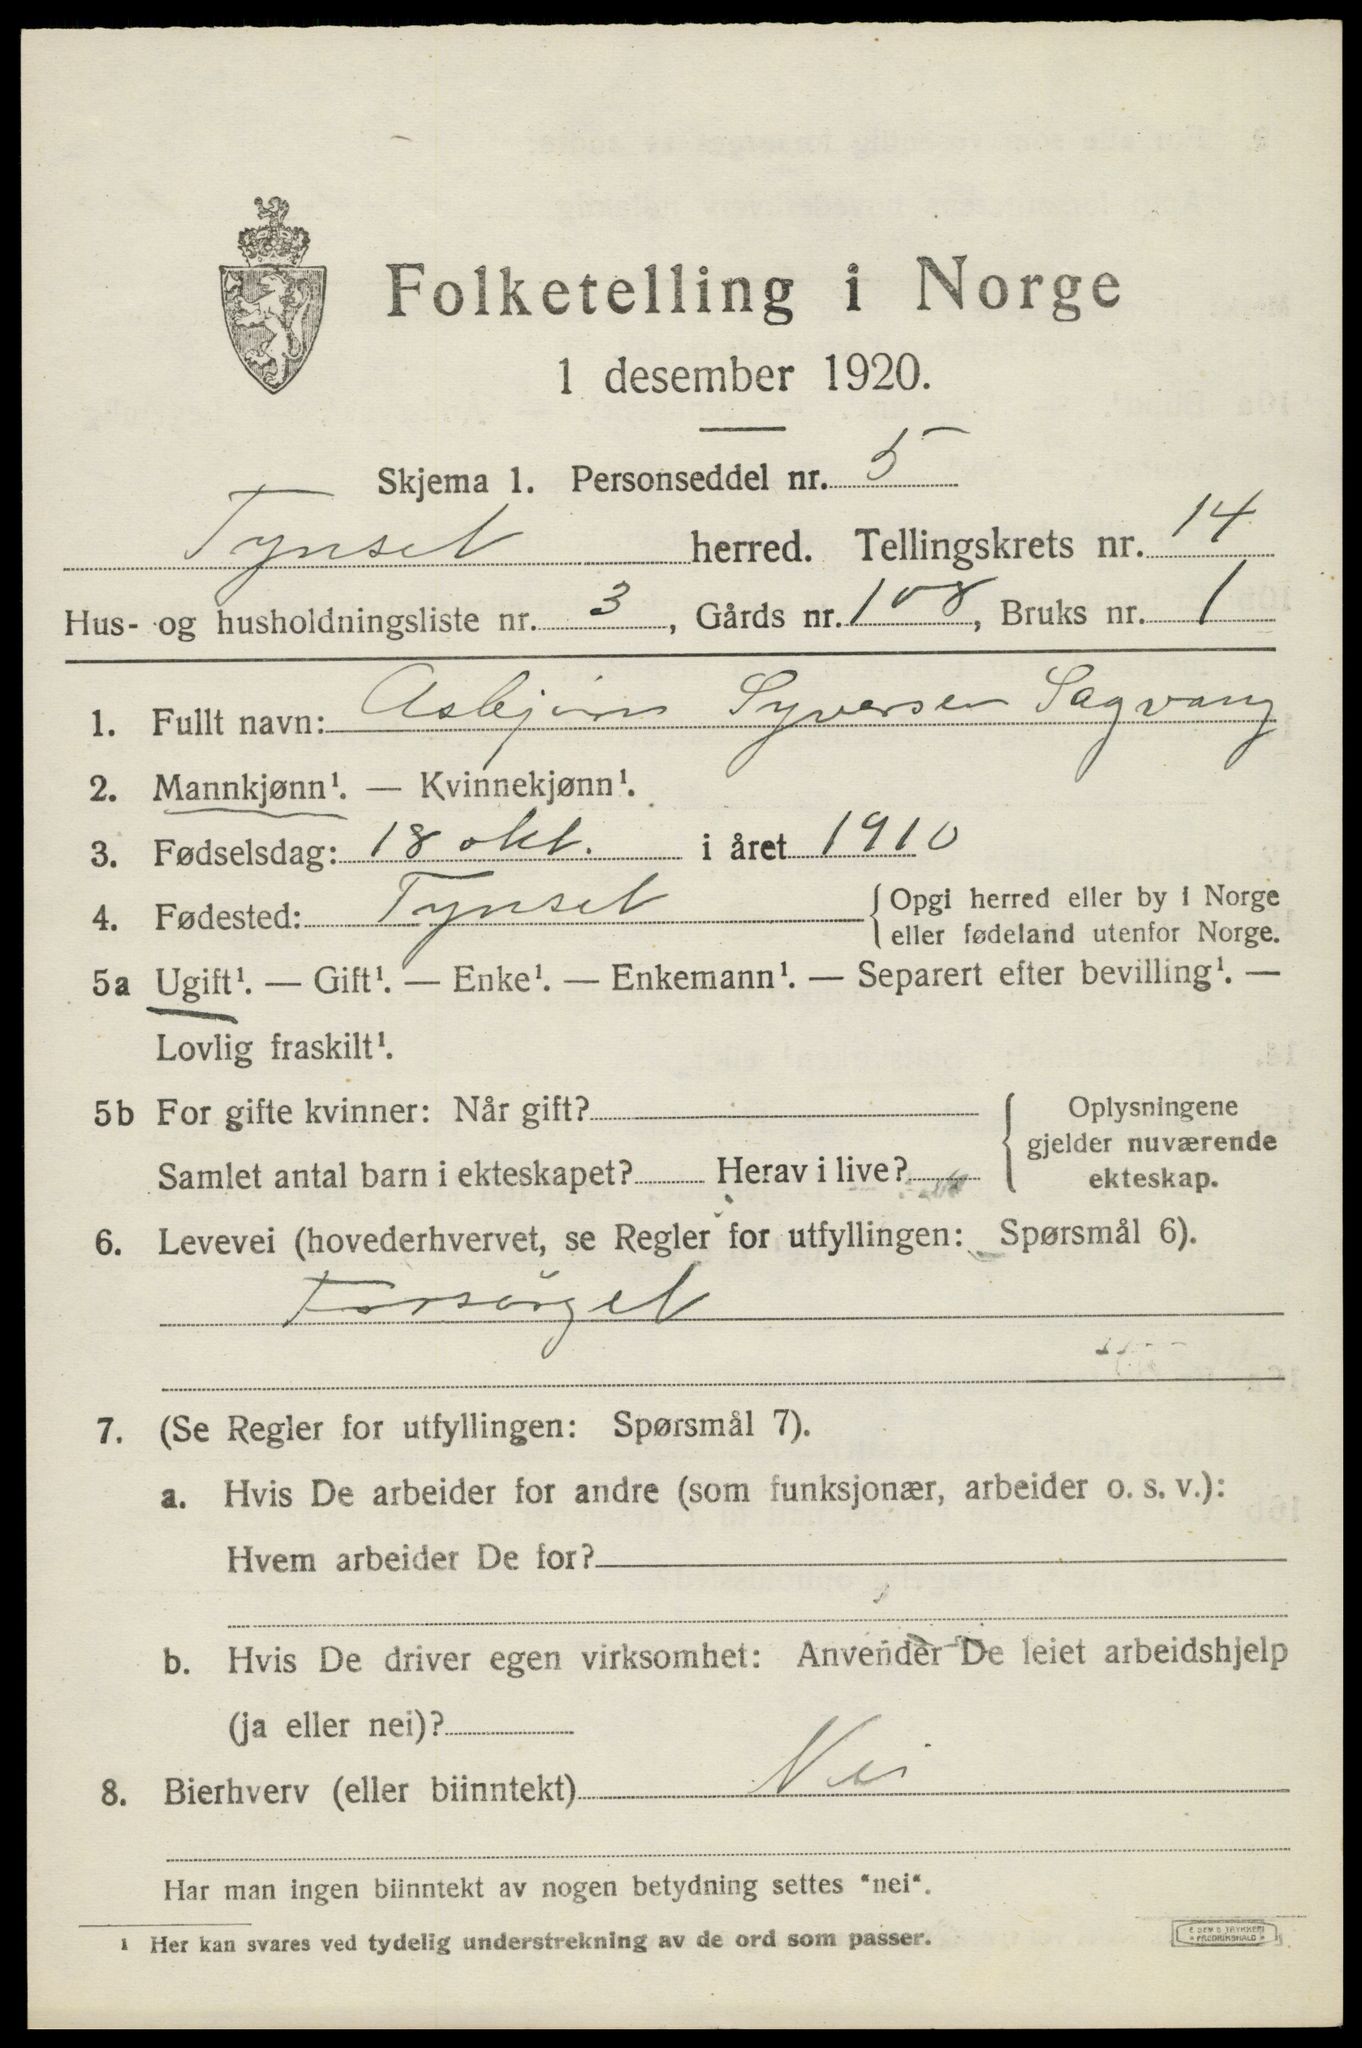 Folketelling i Norge
1 desember 1920.
Skjema 1. Personseddel nr. 5
Tynset herred. Tellingskrets nr. 14
Hus- og husholdningsliste nr. 3, Gårds nr. 108, Bruks nr. 1
1. Fullt navn: Asbjörn Syversen Sagvang
2. Mannkjønn¹. — Kvinnekjønn¹.
3. Fødselsdag: 18 okt. i året 1910
4. Fødested: Tynset { Opgi herred eller by i Norge
eller fødeland utenfor Norge.
5a Ugift¹. — Gift¹. — Enke¹. — Enkemann¹. — Separert efter bevilling¹. —
Lovlig fraskilt¹.
5b For gifte kvinner: Når gift? { Oplysningene
gjelder nuværende
Samlet antal barn i ekteskapet? Herav i live? ekteskap.
6. Levevei (hovederhvervet, se Regler for utfyllingen: Spørsmål 6).
Forsörget
7. (Se Regler for utfyllingen: Spørsmål 7).
a. Hvis De arbeider for andre (som funksjonær, arbeider o. s. v.):
Hvem arbeider De for?
b. Hvis De driver egen virksomhet: Anvender De leiet arbeidshjelp
(ja eller nei)?
8. Bierhverv (eller biinntekt) Nei
Har man ingen biinntekt av nogen betydning settes "nei".
¹ Her kan svares ved tydelig understrekning av de ord som passer.